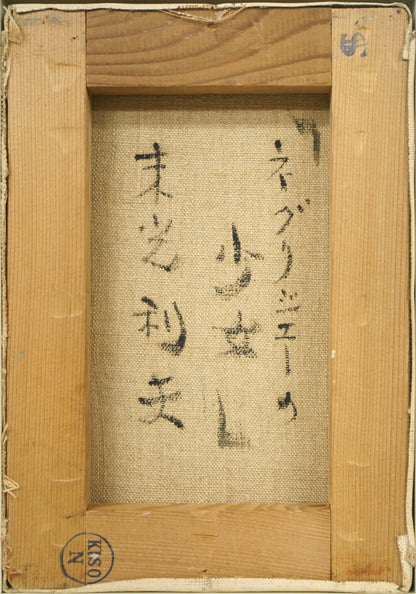 「ネグリジエーの
少女」
末光利夫
KISO
N
S